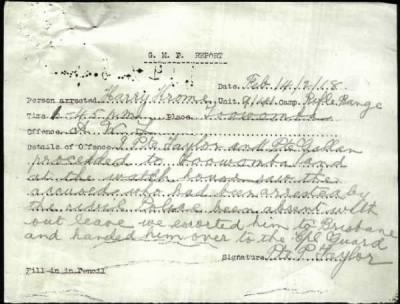 G. M. P. REPORT
Date. Feb 14/2/18.
Person arrested. Harry Krome Unit. Camp. Rifle Range
Time 1-45 pm. Place. Toowomba
Offence.
Details of Offence. I Pte Taylor and Pte
proceeded to Toowomba and
at the watch house saw the
accused who had been arrested by
the civil Police been absent with
out leave we escorted him to Brisbane
and handed him over to the Guard
Signature. Taylor
Fill-in in Pencil